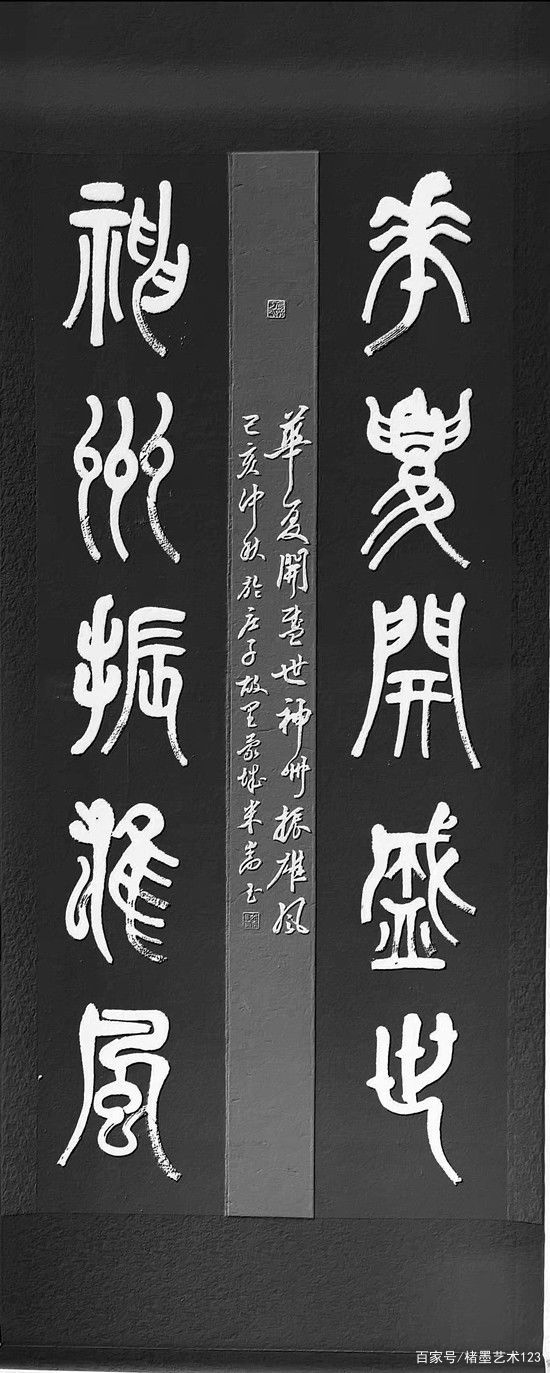 華夏開盛世
神州振雄風
華夏開盛世神州振雄風
己亥仲秋於庄子故里蒙城米嵩玉
百家号/楮墨艺术123